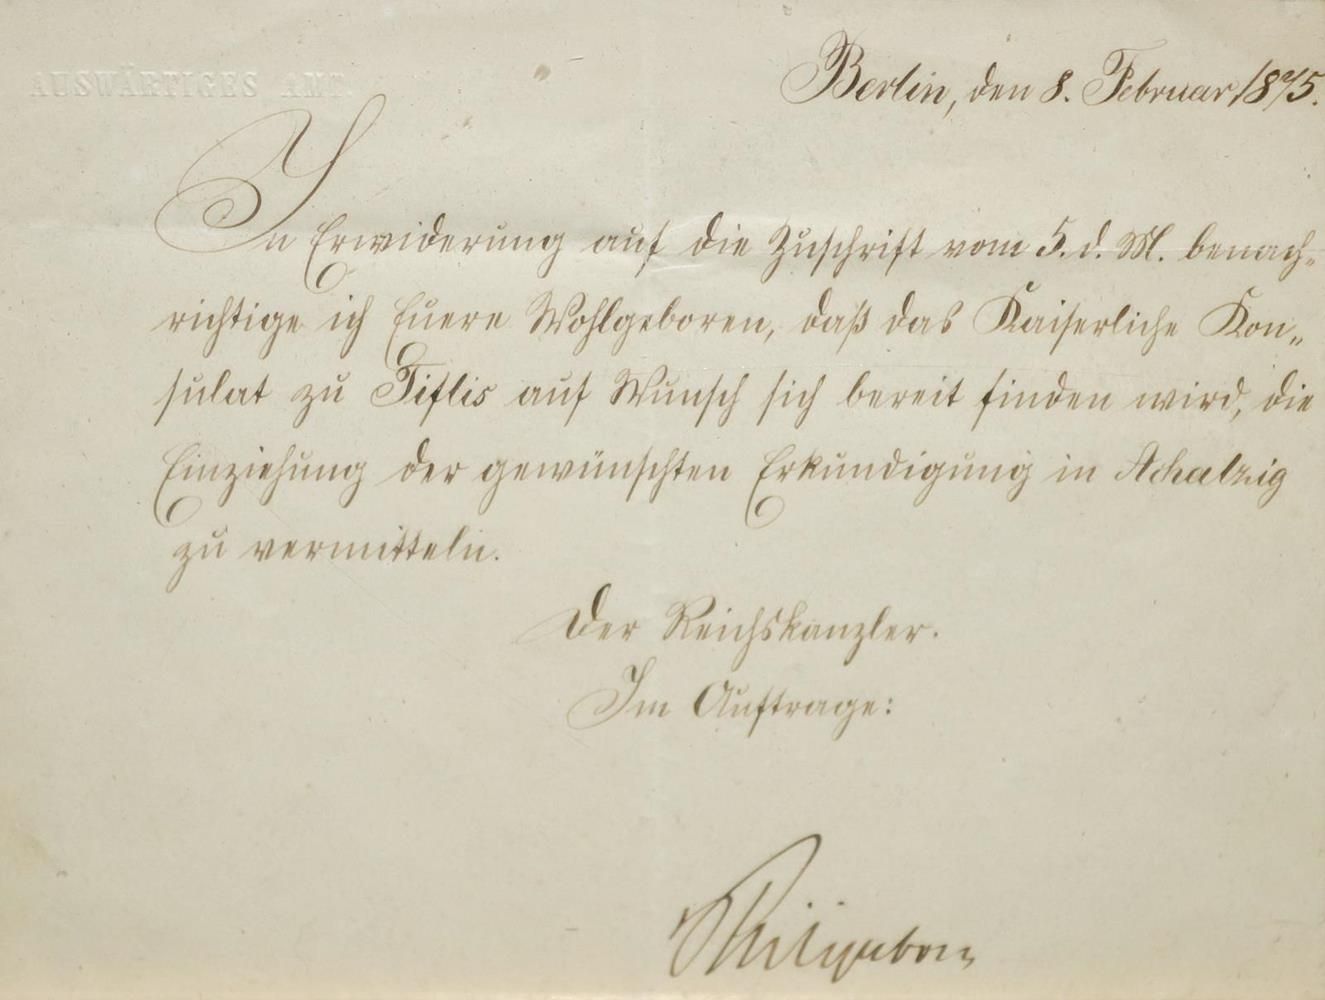 AUSWÄRTIGES AMT.
Berlin, den 8. Februar 1875.
In Erwiderung auf die Zuschrift vom 5. d. M. benach-
richtige ich Euere Wohlgeboren, daß das Kaiserliche Kon-
sulat zu Tiflis auf Wunsch sich bereit finden wird, die
Einziehung der gewünschten Erkundigung in Achalzig
zu vermitteln.
Der Reichskanzler.
Im Auftrage: